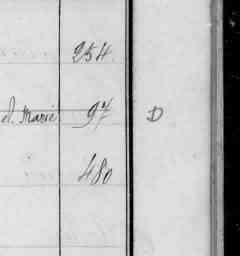 254.
d. Marie 97 D
480